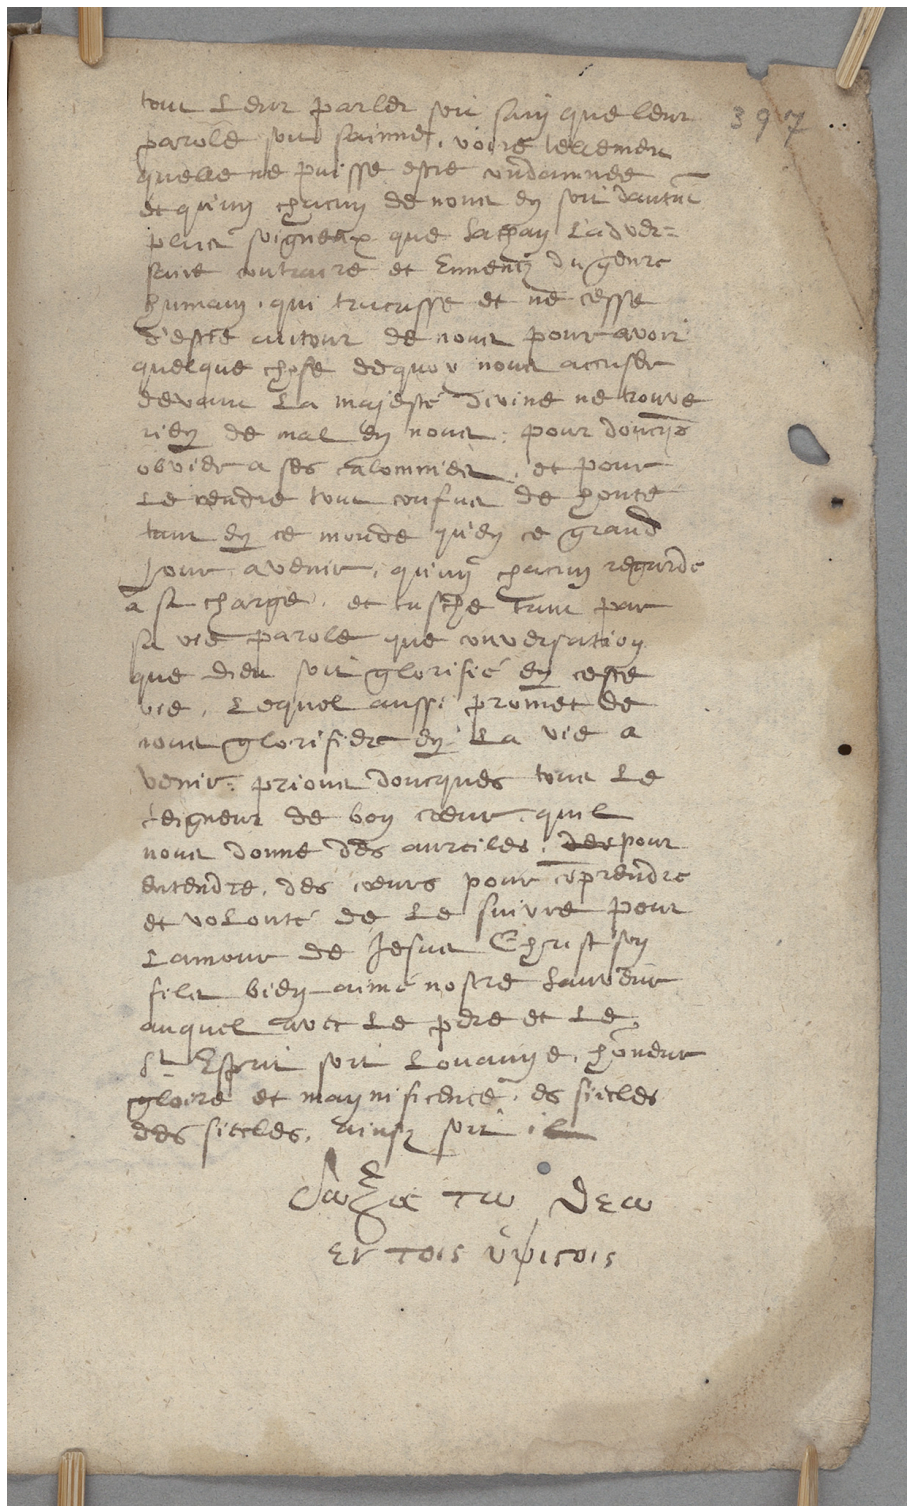 tout Leur parler soit sain que leur
397
parole soit sainne, voire tellement
quelle ne puisse estre condamnee
et qu'un chacun de nous en soit dautāt
plus soigneux que Sathan L'adver=
saire contraire et Ennemy du genre
humain, qui tracasse et ne cesse
d'estre autour de nous pour avoir
quelque chose dequoy nous accuser
devant La majesté divine ne trouve
rien de mal en nous: pour doncqs
obvier a ses calomnies, et pour
Le rendre tout confus de honte
tant en ce monde qu'en ce grand
Jour avenir, qu'un chacun regarde
a sa charge, et tasche tant par
sa vie parole que conversation
que dieu soit glorifié en ceste
vie, Lequel aussi promet de
nous glorifier en La vie a
venir: prions doncques tous Le
seigneur de bon cœur, quil
nous donne des aureiles, des pour
entendre, des cœurs pour cōprendre
et volonté de Le suivre pour
L'amour de Jesus Christ son
fils bien-aimé nostre Sauveur
auquel avec Le pere et Le
St Esprit soit Louange, hōneur
gloire et magnificence, es siecles
des siecles, ainsy soit il
Δωξα τω Δεω
εν τοις ὑψισοις